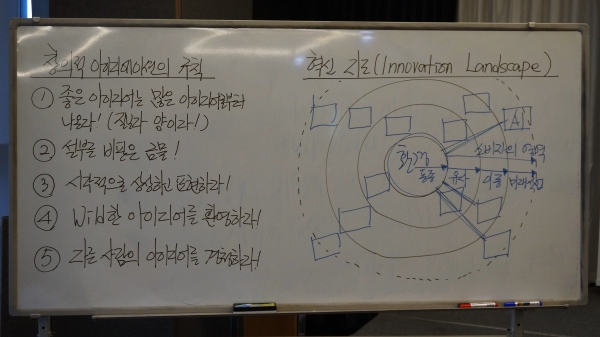 창의적 아이디에이션의 규칙
① 좋은 아이디어는 많은 아이디어로부터
나온다! (질보다 양이다!)
② 섣부른 비판은 금물!
③ 시각적으로 상상하고 표현하라!
④ Wild한 아이디어를 환영하라!
⑤ 다른 사람의 아이디어를 경청하라!
혁신 지도(Innovation Landscape)
A
소비자의 영역
환경
동종 유사 이종 미래